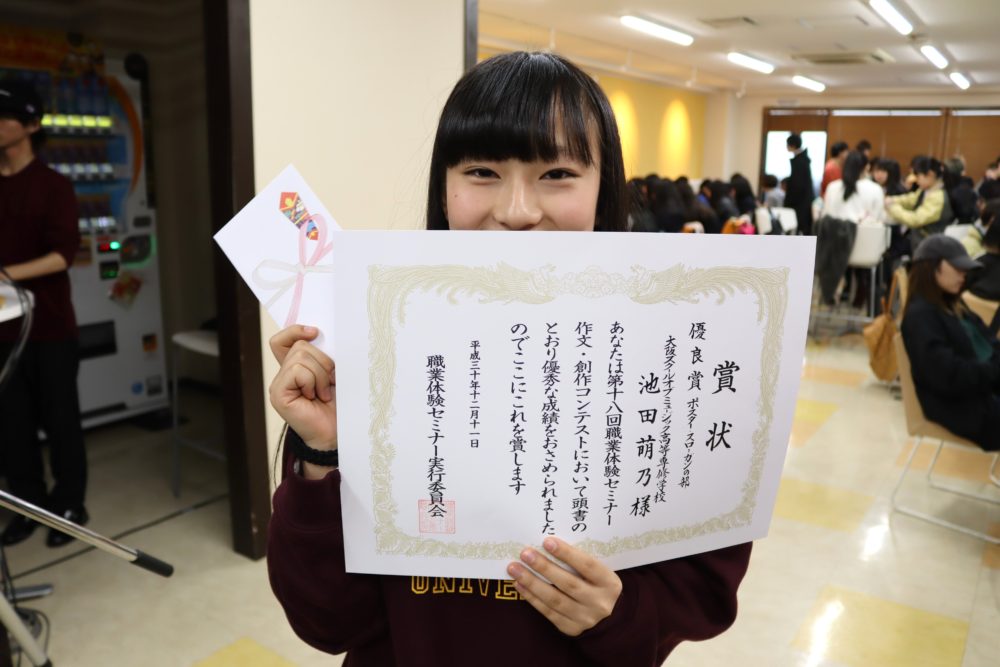 賞状
優良賞 ポスター スローガンの部
大阪スクールオブミュージック高等専修学校
池田萌乃様
あなたは第十八回職業体験セミナー
作文・創作コンテストにおいて頭書の
とおり優秀な成績をおさめられました
のでここにこれを賞します
平成三十年十二月十一日
職業体験セミナー実行委員会